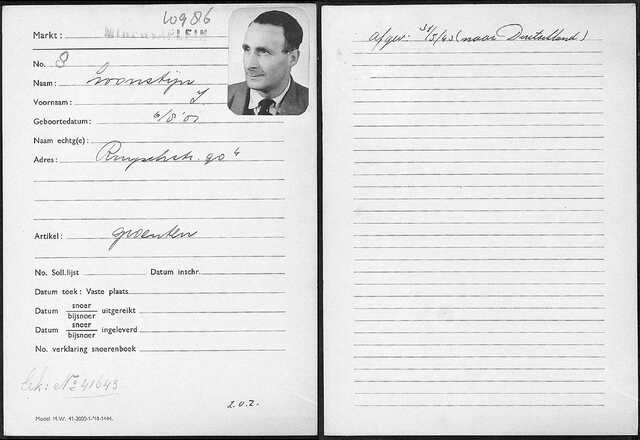 10986
Markt : MINERVAPLEIN
No. 8
Naam : Loonstijn
Voornaam : J
Geboortedatum : 6/8 '01
Naam echtg(e) :
Adres : Ruyschstr. 90
Artikel : groenten
No. Soll.lijst Datum inschr.
Datum toek : Vaste plaats
Datum snoer bijsnoer uitgereikt
Datum snoer bijsnoer ingeleverd
No. verklaring snoerenboek
No 41643
z.o.z.
Model M.W.
afgev. 31/5/43 (naar Duitschland)